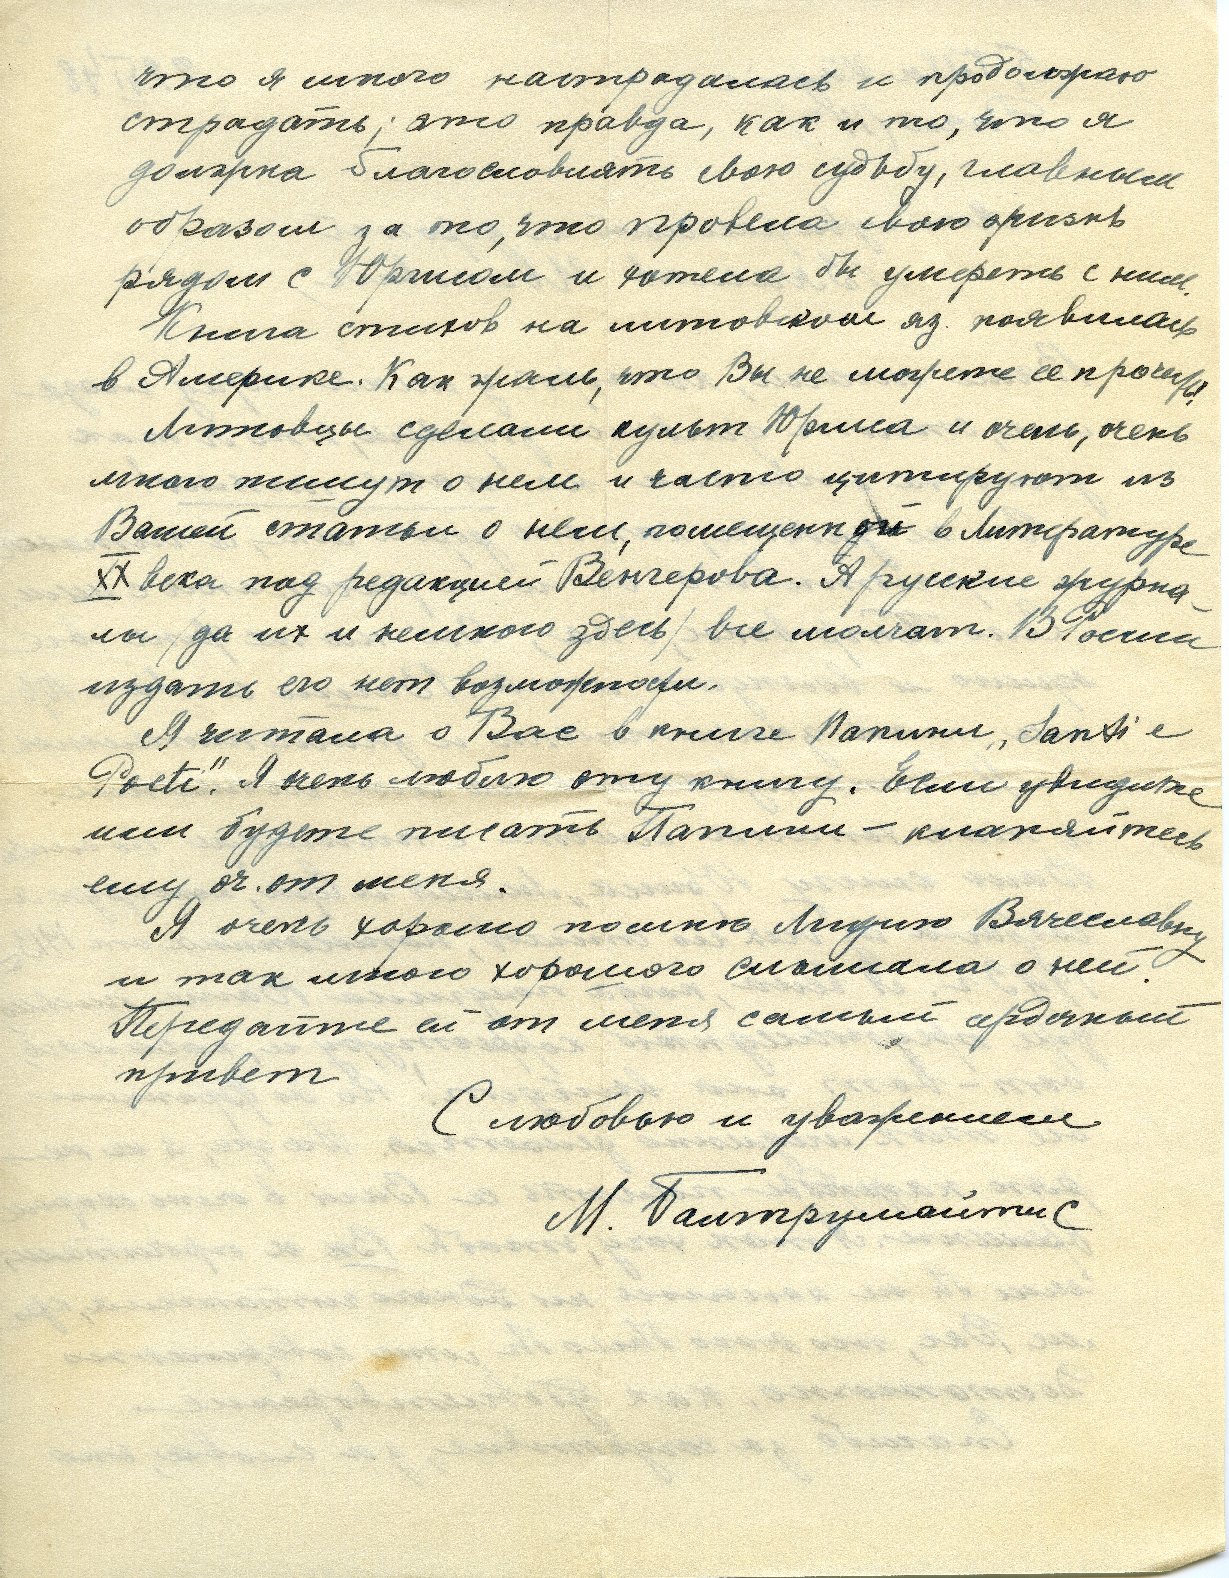 что я много настрадалась и продолжаю
страдать; это правда, как и то, что я
должна благословлять свою судьбу, главным
образом за то, что провела свою жизнь
рядом с Юргисом и хотела бы умереть с ним.
Книга стихов на литовском яз. появилась
в Америке. Как жаль, что Вы не можете ее прочесть!
Литовцы сделали культ Юргиса и очень, очень
много пишут о нем и часто цитируют из
Вашей статьи о нем, помещенной в Литературе
XX века под редакцией Венгерова. А русские журна-
лы /да их и немного здесь/ все молчат. В России
издать его нет возможности.
Я читала о Вас в книге Папини „Santi e
Poeti". Я очень люблю эту книгу. Если увидите
или будете писать Папини – кланяйтесь
ему оч. от меня.
Я очень хорошо помню Лидию Вячеславну
и так много хорошего слышала о ней.
Передайте ей от меня самый сердечный
привет
С любовью и уважением
М. Балтрушайтис